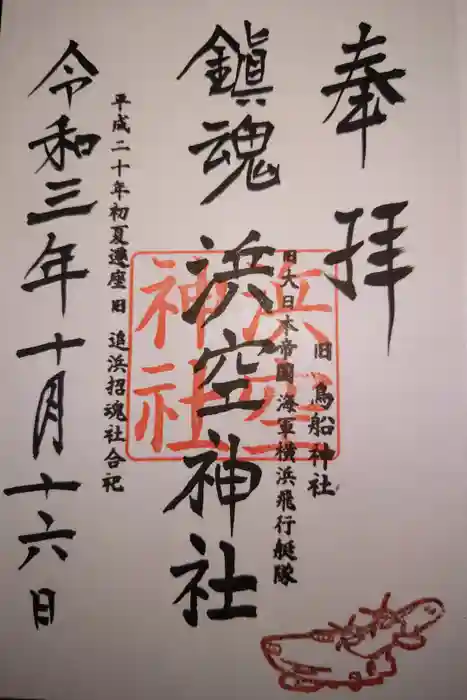 奉拝
旧 鳥船神社
旧大日本帝国海軍横浜飛行艇隊
鎮魂 浜空神社
浜空
神社
平成二十年初夏遷座 旧 追浜招魂社合祀
令和三年十月十六日